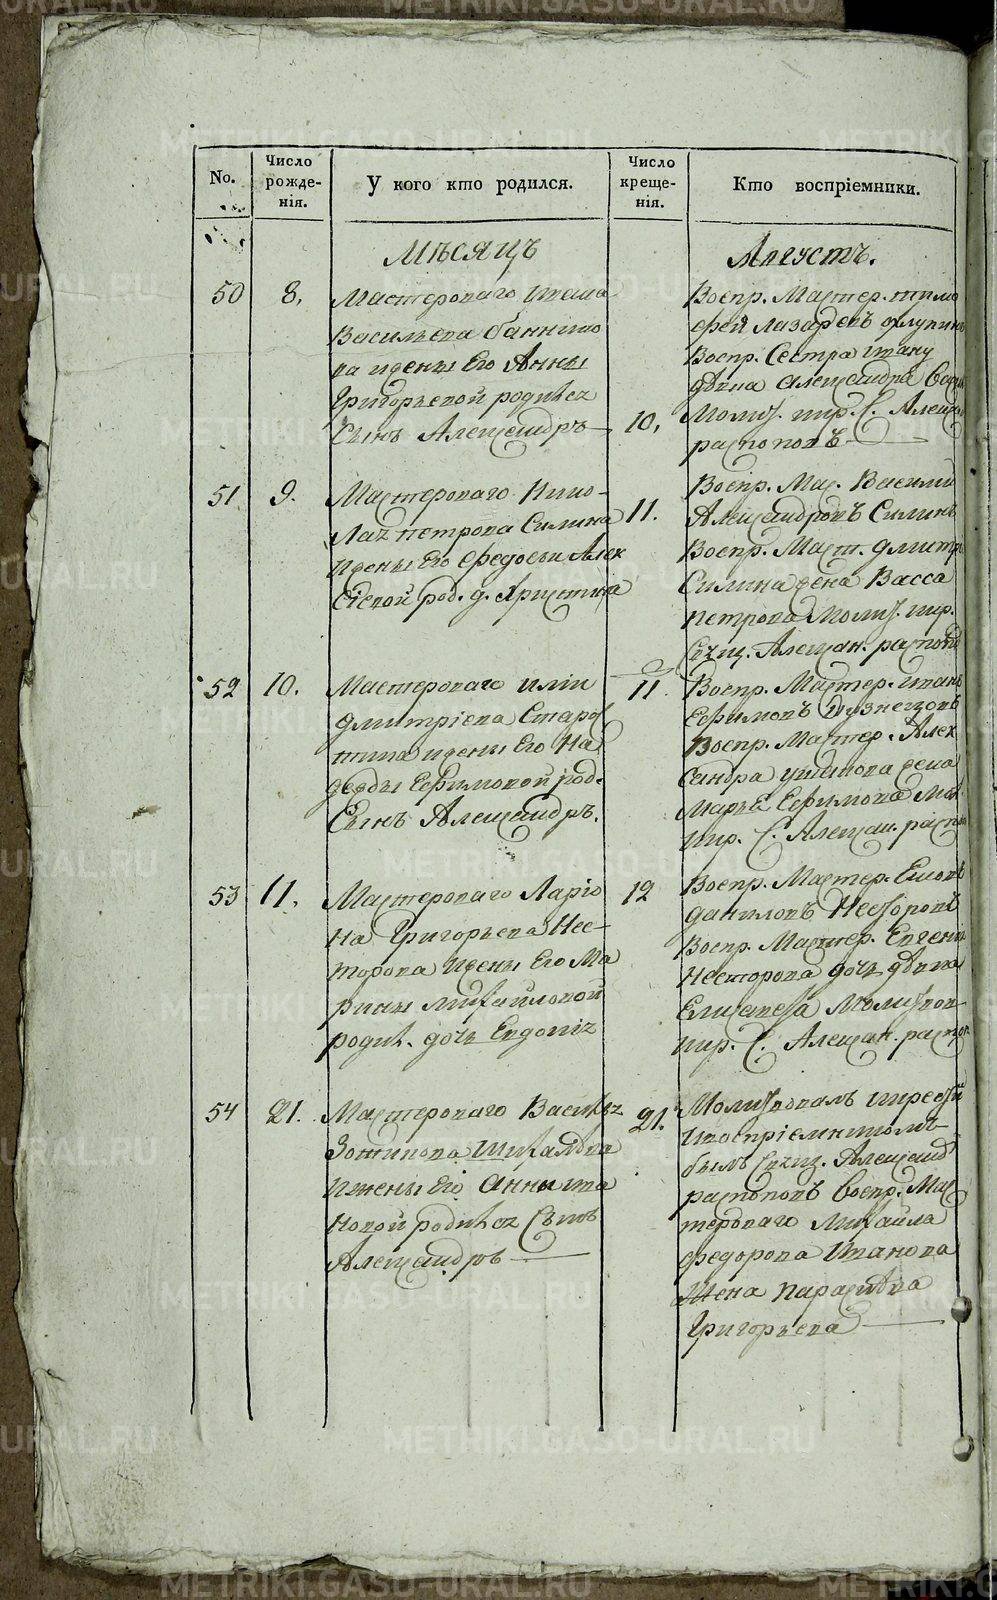 No.
Число рожде-нія.
У кого кто родился.
Число креще-нія.
Кто воспріемники.
Мѣсяцъ
Августъ.
50
8.
Мастероваго Ивана
Васильева
ва и жены Его Анны
Григорьевой родился
Сынъ Александръ
10.
Воспр. Мастер. тимо
фей Лазаревъ
Воспр. Сестра
дѣвка александра
Молит. имр. С. Алекса
распоповъ
51
9.
Мастероваго Нико-
лая петрова Силина
и жены Его федосьи Алек
сіевой род. д. Христина
11.
Воспр. Мас. Василий
Александровъ Силинъ
Воспр. Маст. дмитр
Силина жена Васса
петрова Молит. имр.
свящ. Алексан. распопо
52
10.
Мастероваго иліи
дмитріева Старо
тина и жены Его На
дежды Ефимовой род.
Сынъ Александръ.
11.
Воспр. Мастер. иванъ
Ефимовъ Кузнецовъ
Воспр. Мастер. Алек
сандра ушакова жена
Марья Ефимова Мол
имр. С. Алексан. распоп
53
11.
Мастероваго Ларіо
на Григорьева Нес-
торова и жены Его Ма
рины михайловой
родил. дочь Евдокія
12
Воспр. Мастер.
даниловъ Несторовъ
Воспр. Мастер. Евгені
Несторова дочь дѣвка
Елисавета Молитвов
имр. С. Алексан. распоп.
54
21.
Мастероваго Василья
Зотикова
и жены Его Анны ива
новой родился Сынъ
Александръ
21.
Молитвовалъ имреклъ
и воспріемникомъ
былъ свящ. Александ
распоповъ Воспр. Мас
тероваго Михайла
федорова Иванова
Жена Параскѣва
Григорьева
METRIKI.GASO-URAL.RU